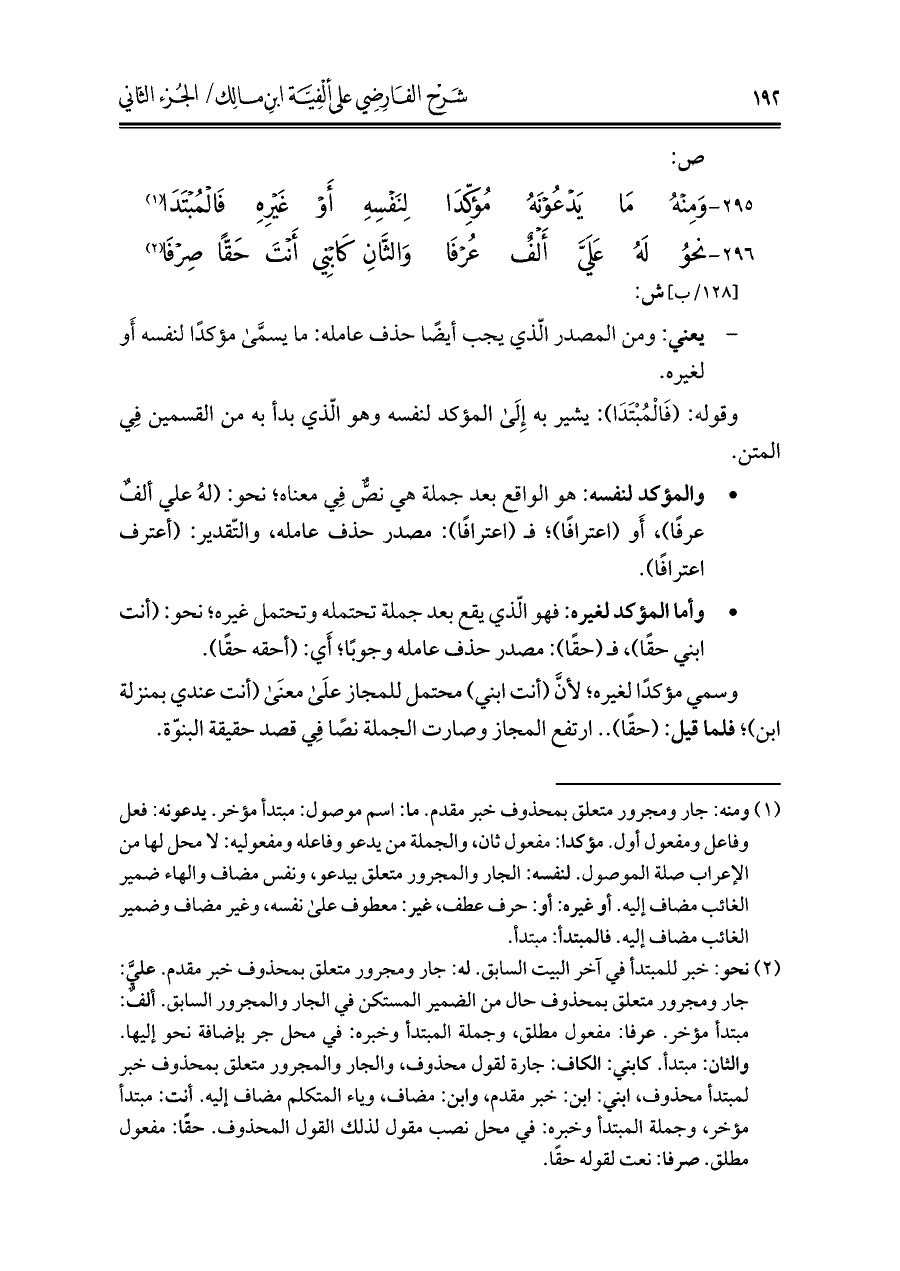 ١٩٢ شَرْح الفَارِضِي على أَلْفِيَّة ابنِ مالِك/ الجُزء الثاني
ص:
٢٩٥-وَمِنْهُ مَا يَدْعُوْنَهُ مُؤَكِّدَا لِنَفْسِهِ أَوْ غَيْرِهِ فَالْمُبْتَدَا(١)
٢٩٦-نحوُ لَهُ عَلَيَّ أَلْفٌ عُرْفَا وَالثَّانِ كَابْنِي أَنْتَ حَقًّا صِرْفَا(٢)
[١٢٨/ ب] ش:
- يعني: ومن المصدر الّذي يجب أيضًا حذف عامله: ما يسمَّىٰ مؤكدًا لنفسه أَو
لغيره.
وقوله: (فَالْمُبْتَدَا): يشير به إِلَىٰ المؤكد لنفسه وهو الّذي بدأ به من القسمين فِي
المتن.
• والمؤكد لنفسه: هو الواقع بعد جملة هي نصٌّ فِي معناه؛ نحو: (لهُ علي ألفٌ
عرفًا)، أَو (اعترافًا)؛ فـ (اعترافًا): مصدر حذف عامله، والتّقدير: (أعترف
اعترافًا).
• وأما المؤكد لغيره: فهو الّذي يقع بعد جملة تحتمله وتحتمل غيره؛ نحو: (أنت
ابني حقًا)، فـ (حقًا): مصدر حذف عامله وجوبًا؛ أَي: (أحقه حقًا).
وسمي مؤكدًا لغيره؛ لأنَّ (أنت ابني) محتمل للمجاز علَىٰ معنَىٰ (أنت عندي بمنزلة
ابن)؛ فلما قيل: (حقًا).. ارتفع المجاز وصارت الجملة نصًا فِي قصد حقيقة البنوّة.
(١) ومنه: جار ومجرور متعلق بمحذوف خبر مقدم. ما: اسم موصول: مبتدأ مؤخر. يدعونه: فعل
وفاعل ومفعول أول. مؤكدا: مفعول ثان، والجملة من يدعو وفاعله ومفعوليه: لا محل لها من
الإعراب صلة الموصول. لنفسه: الجار والمجرور متعلق بيدعو، ونفس مضاف والهاء ضمير
الغائب مضاف إليه. أو غيره: أو: حرف عطف، غير: معطوف علىٰ نفسه، وغير مضاف وضمير
الغائب مضاف إليه. فالمبتدأ: مبتدأ.
(٢) نحو: خبر للمبتدأ في آخر البيت السابق. له: جار ومجرور متعلق بمحذوف خبر مقدم. عليَّ:
جار ومجرور متعلق بمحذوف حال من الضمير المستكن في الجار والمجرور السابق. ألفٌ:
مبتدأ مؤخر. عرفا: مفعول مطلق، وجملة المبتدأ وخبره: في محل جر بإضافة نحو إليها.
والثان: مبتدأ. كابني: الكاف: جارة لقول محذوف، والجار والمجرور متعلق بمحذوف خبر
لمبتدأ محذوف، ابني: ابن: خبر مقدم، وابن: مضاف، وياء المتكلم مضاف إليه. أنت: مبتدأ
مؤخر، وجملة المبتدأ وخبره: في محل نصب مقول لذلك القول المحذوف. حقًا: مفعول
مطلق. صرفا: نعت لقوله حقًا.